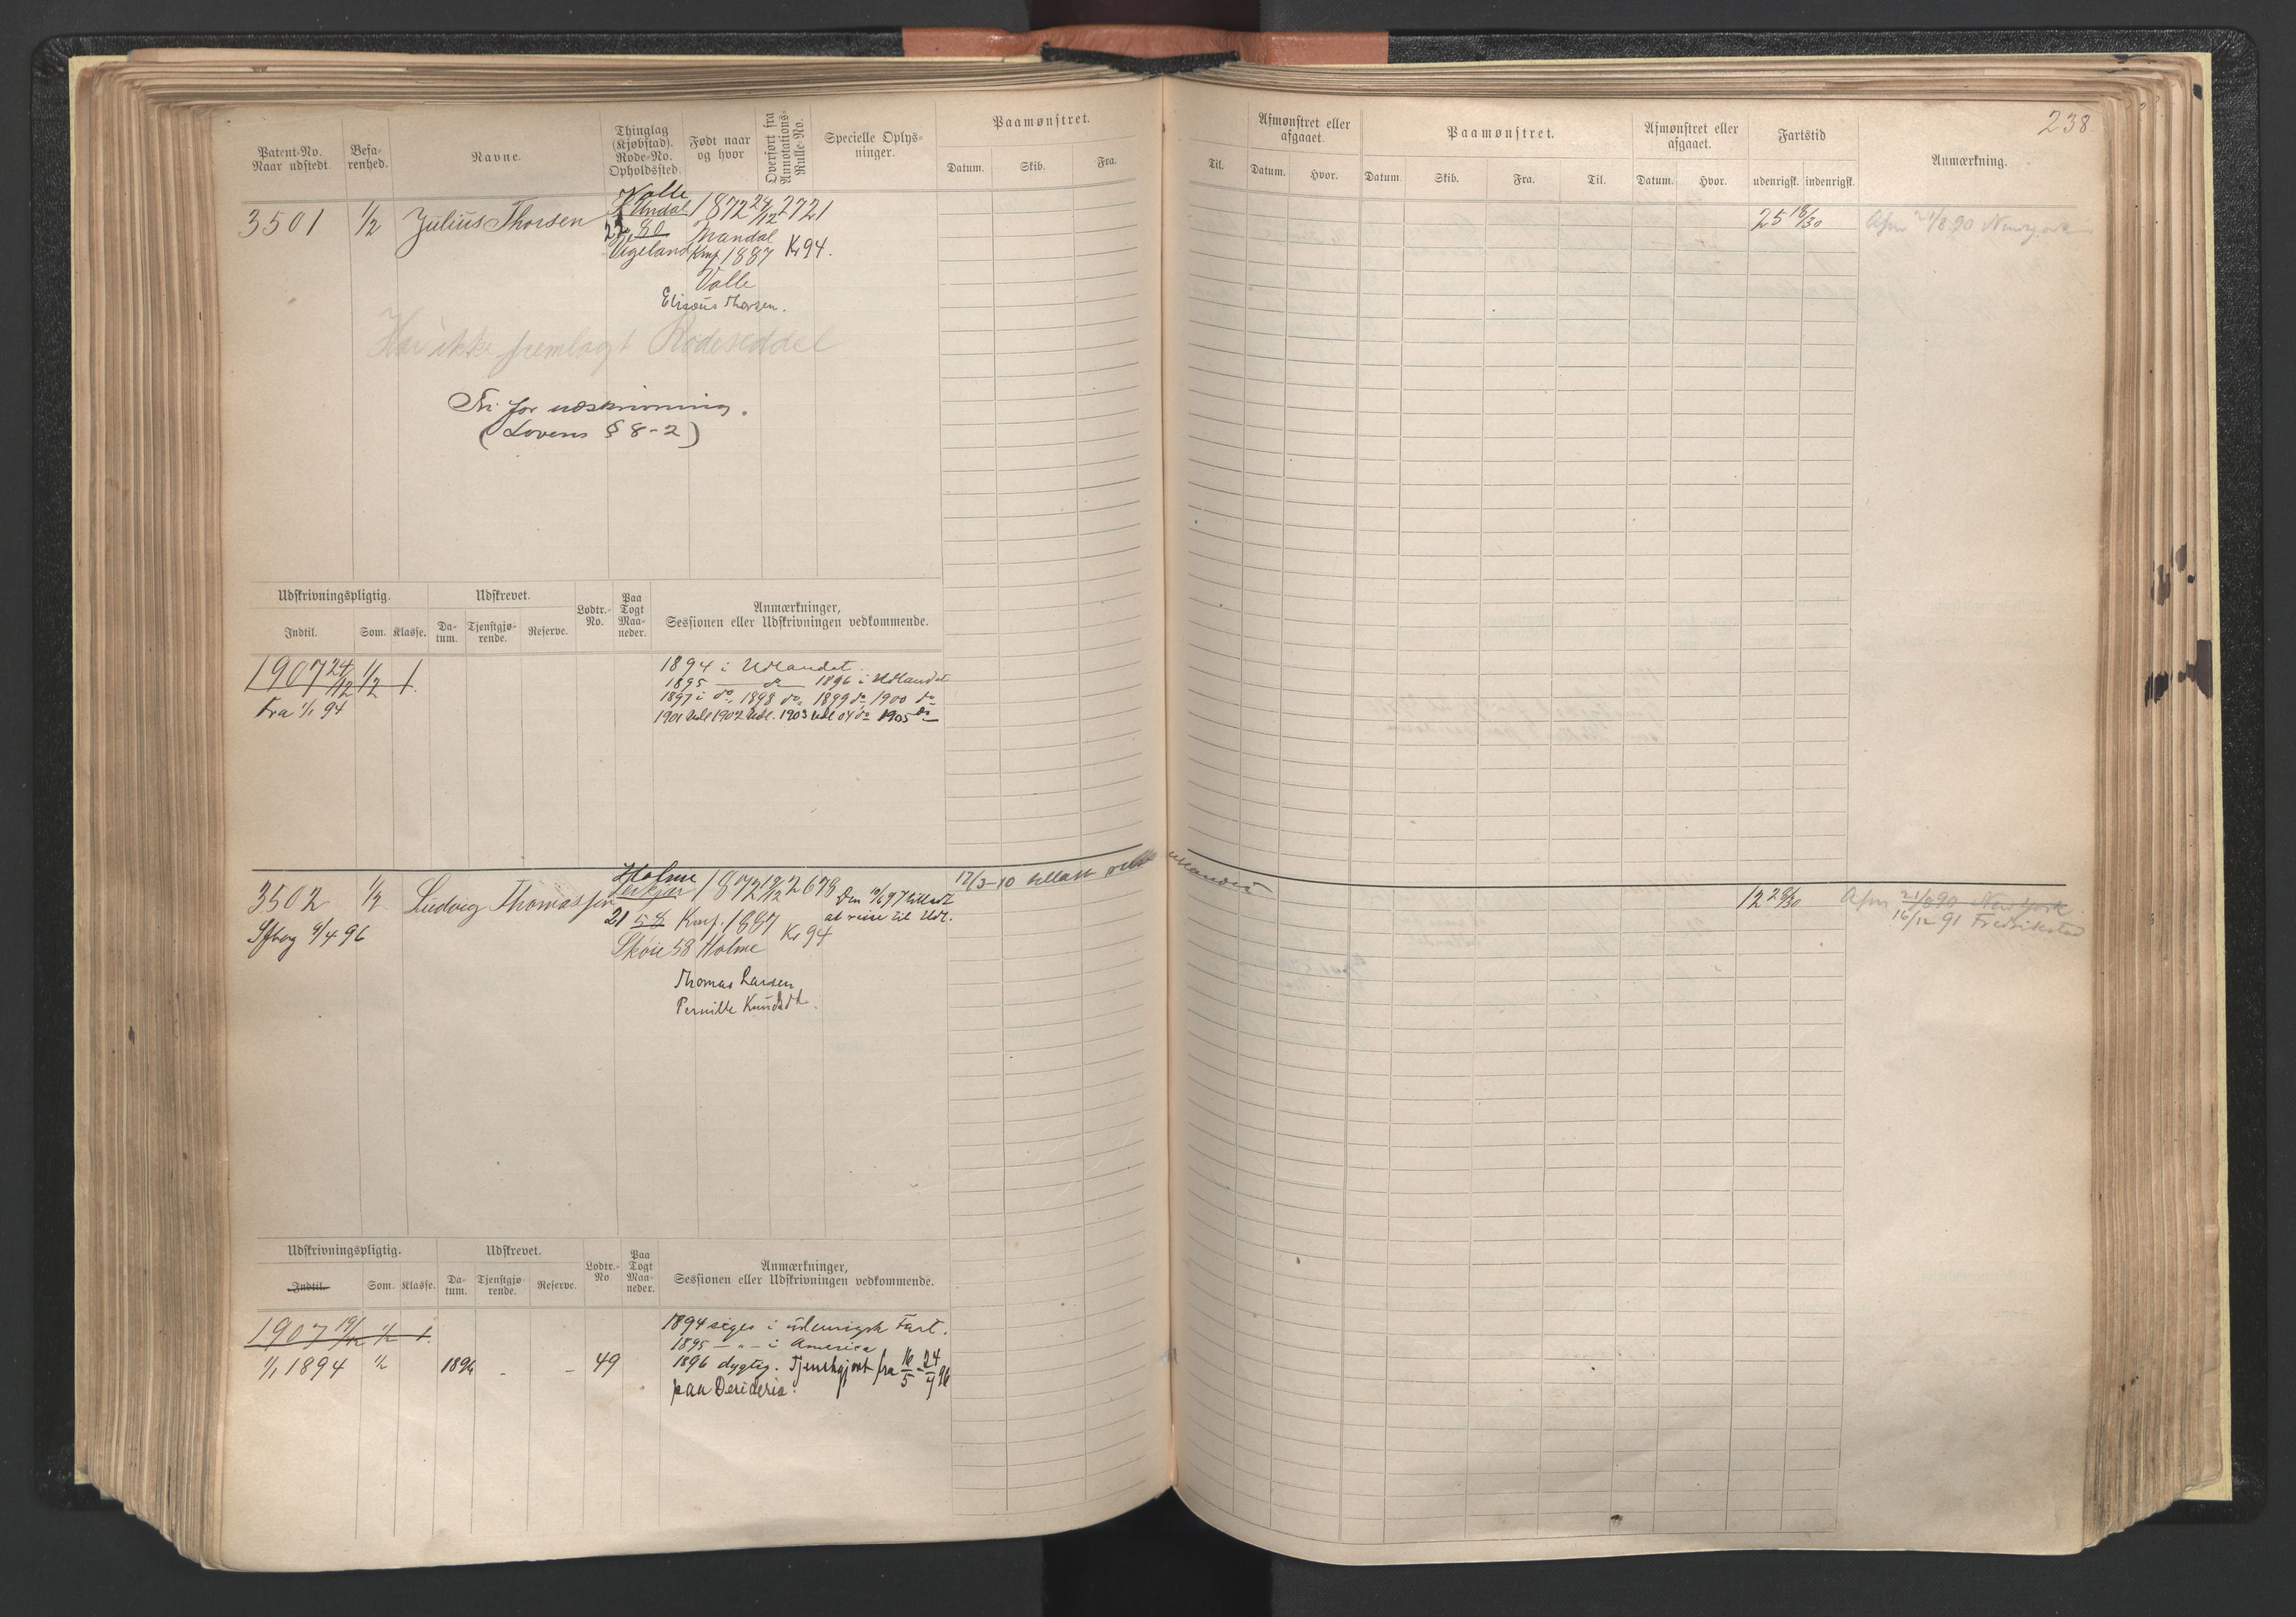 238.
Patent-No.
Naar udstedt.
Befa-
renhed.
Navne.
Thinglag
(Kjøbstad).
Rode-No.
Opholdssted.
Født naar
og hvor
Overført fra
Annotations-
Rulle-No.
Specielle Oplys-
ninger.
Paamønstret.
Datum. Skib. Fra.
Til.
Afmønstret eller
afgaaet.
Datum. Hvor.
Paamønstret.
Datum. Skib. Fra. Til.
Afmønstret eller
afgaaet.
Datum. Hvor.
Fartstid
udenrigsk. indenrigsk.
Anmærkning.
3501 1/2 Julius Thorsen
Valle
Undal
80
Vigeland
1872 24/12 2721
Mandal
Kmf 1887 Kr 94.
Valle
Elisæus Thorsen.
25 18/30
Afm 21/8 90 Newyork
Har ikke fremlagt Rodeseddel
Fri for udskrivning.
(Lovens § 8-2)
Udskrivningspligtig. Udskrevet.
Lodtr.-
No.
Paa
Togt
Maa-
neder.
Anmærkninger,
Sessionen eller Udskrivningen vedkommende.
Indtil. Som. Klasse.
Da-
tum.
Tjenstgjø-
rende.
Reserve.
1907 24/12 1/2 1.
Fra 1/1 94
1894 i Udlandet.
1895 do 1896 i Udlandet
1897 i do, 1898 do, 1899 do 1900 do
1901 Udl 1902 Udl. 1903 Udl 04 do 1905 do
3502 1/2 Ludvig Thomassen
Sfbog 9/4 96
Holme
21 58
Skoie 58
1872 19/12 2678
Kmf. 1887
Holme Kr 94
Den 10/6 97 tilladt
at reise til Udl.
Thomas Larsen
Pernille Knudsdt.
17/3-10 tilladt udlandet
12 28/30
Afm 21/8 90 New York
16/12 91 Fredrikstad
Udskrivningspligtig. Udskrevet.
Lodtr.-
No
Paa
Togt
Maa-
neder.
Anmærkninger,
Sessionen eller Udskrivningen vedkommende.
Indtil. Som. Klasse.
Da-
tum.
Tjenstgjø
rende.
Reserve.
1907 19/12 1/2 1.
1/1 1894 1/2 1896 - - 49
1894 siges i udenrigsk Fart.
1895 - " - i America
1896 dygtig. Tjenstgjort fra 16/5 - 24/9 96
paa Desideria.